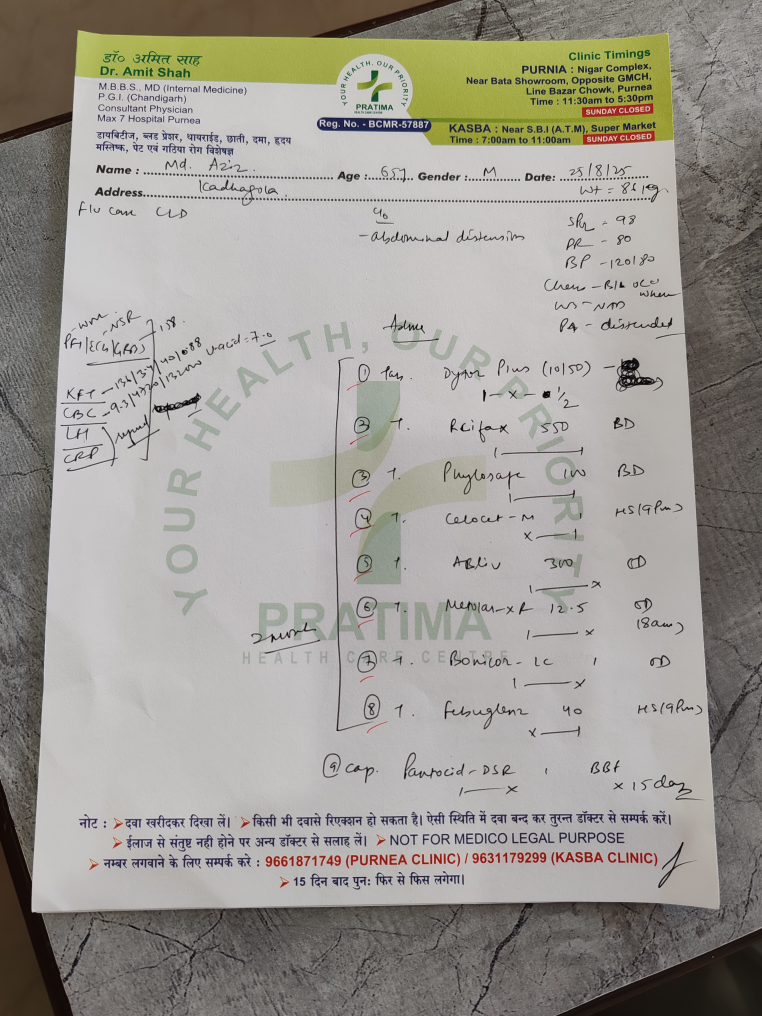 डॉ० अमित साह
Dr. Amit Shah
M.B.B.S., MD (Internal Medicine)
P.G.I. (Chandigarh)
Consultant Physician
Max 7 Hospital Purnea
डायबिटीज, ब्लड प्रेशर, थायराईड, छाती, दमा, हृदय
मस्तिष्क, पेट एवं गठिया रोग विशेषज्ञ
YOUR HEALTH, OUR PRIORITY
PRATIMA
HEALTH CARE CENTRE
Reg. No. - BCMR-57887
Clinic Timings
PURNIA : Nigar Complex,
Near Bata Showroom, Opposite GMCH,
Line Bazar Chowk, Purnea
Time : 11:30am to 5:30pm
SUNDAY CLOSED
KASBA : Near S.B.I (A.T.M), Super Market
Time : 7:00am to 11:00am SUNDAY CLOSED
Name : Md. Aziz Age : 65y Gender : M Date: 25/8/25
Address Kadhagola Wt = 86 kg
CLD
c/o
- abdominal distension
SPO2 = 98
PR - 80
BP - 120/80
PA - distended
ECG
KFT
CBC
CRP
Advice
YOUR HEALTH, OUR PRIORITY
PRATIMA
HEALTH CARE CENTRE
1 Tab. Dytor Plus (10/50)
1 - x - 1/2
2 T. Rcifax 550 BD
1 — 1
3 T. Phylosafe 100 BD
1 — 1
4 T. Celocet-M 1 HS (9pm)
x — 1
5 T. Abliv 300 OD
1 — x
6 T. Metolar-XR 12.5 OD
(8am)
1 — x
7 T. Bonicor-LC 1 OD
1 — x
8 T. Febuglenz 40 HS (9pm)
x — 1
2 month
9 Cap. Pantocid-DSR 1 BBF
1 — x
x 15 days
नोट : दवा खरीदकर दिखा लें। किसी भी दवासे रिएक्शन हो सकता है। ऐसी स्थिति में दवा बन्द कर तुरन्त डॉक्टर से सम्पर्क करें।
ईलाज से संतुष्ट नही होने पर अन्य डॉक्टर से सलाह लें। NOT FOR MEDICO LEGAL PURPOSE
नम्बर लगवाने के लिए सम्पर्क करे : 9661871749 (PURNEA CLINIC) / 9631179299 (KASBA CLINIC)
15 दिन बाद पुनः फिर से फिस लगेगा।